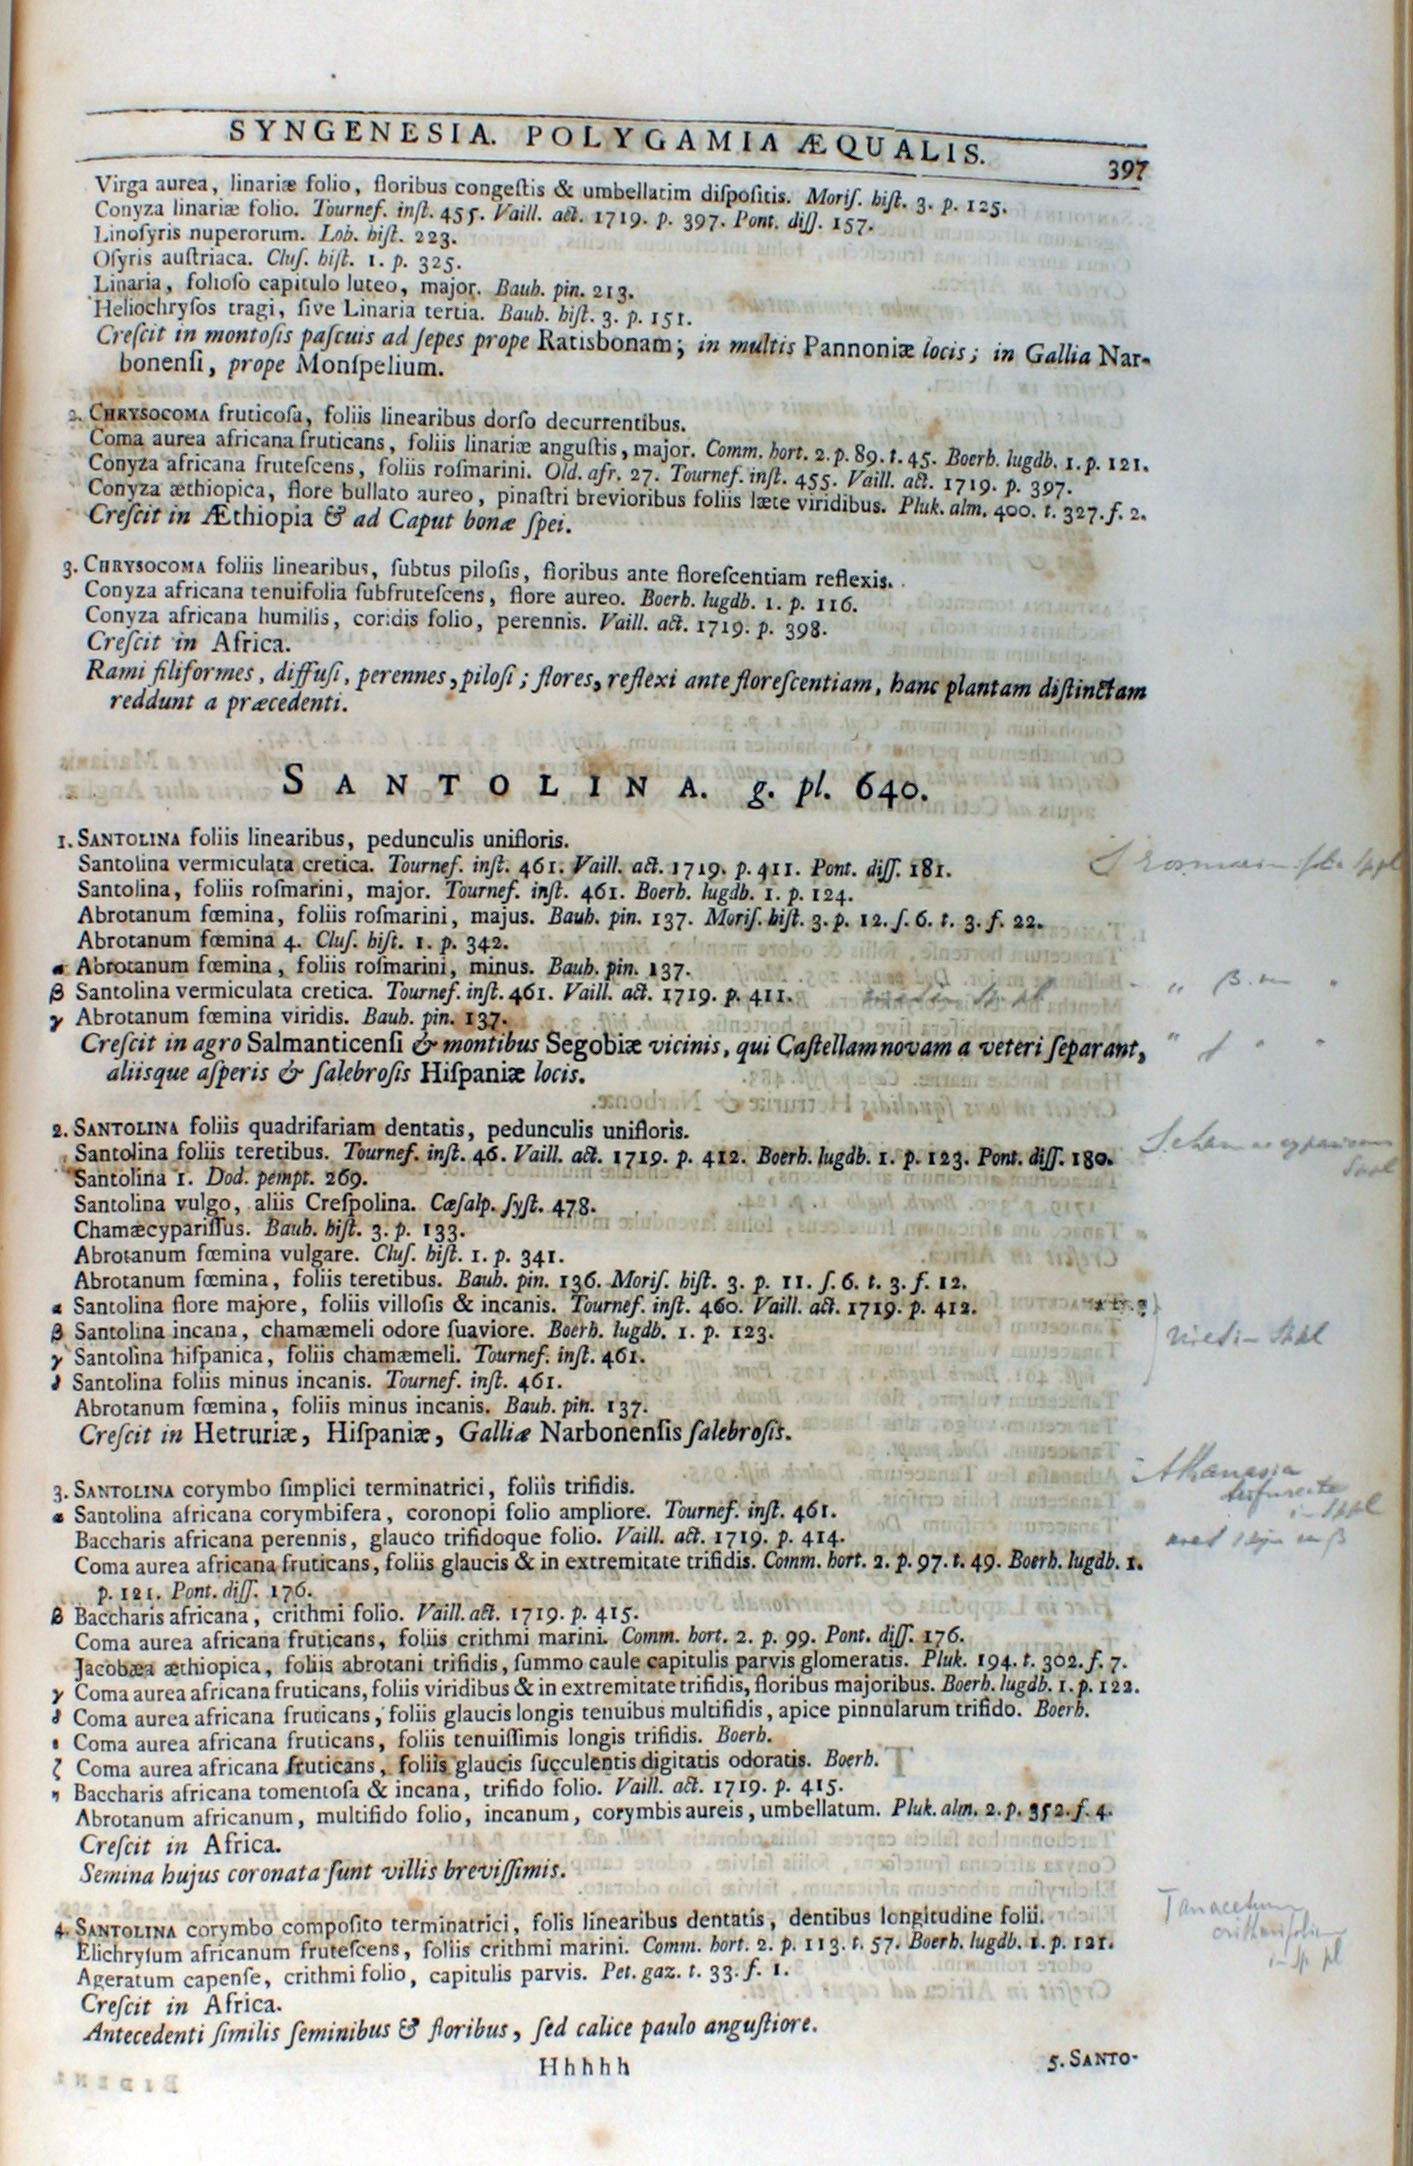 SYNGENESIA. POLYGAMIA ÆQUALIS.
397
Virga aurea, linariæ folio, floribus congeſtis & umbellatim diſpoſitis. Moriſ. hiſt. 3. p. 125.
Conyza linariæ folio. Tournef. inſt. 455. Vaill. act. 1719. p. 397. Pont. diſſ. 157.
Linoſyris nuperorum. Lob. hiſt. 223.
Oſyris auſtriaca. Cluſ. hiſt. 1. p. 325.
Linaria, folioſo capitulo luteo, major. Bauh. pin. 213.
Heliochryſos tragi, ſive Linaria tertia. Bauh. hiſt. 3. p. 151.
Creſcit in montoſis paſcuis ad ſepes prope Ratisbonam; in multis Pannoniæ locis; in Gallia Nar-
bonenſi, prope Monſpelium.
2. CHRYSOCOMA fruticoſa, foliis linearibus dorſo decurrentibus.
Coma aurea africana fruticans, foliis linariæ anguſtis, major. Comm. hort. 2. p. 89. t. 45. Boerh. lugdb. 1. p. 121.
Conyza africana fruteſcens, foliis roſmarini. Old. afr. 27. Tournef. inſt. 455. Vaill. act. 1719. p. 397.
Conyza æthiopica, flore bullato aureo, pinaſtri brevioribus foliis læte viridibus. Pluk. alm. 400. t. 327. f. 2.
Creſcit in Æthiopia & ad Caput bonæ ſpei.
3. CHRYSOCOMA foliis linearibus, ſubtus piloſis, floribus ante floreſcentiam reflexis.
Conyza africana tenuifolia ſubfruteſcens, flore aureo. Boerh. lugdb. 1. p. 116.
Conyza africana humilis, coridis folio, perennis. Vaill. act. 1719. p. 398.
Creſcit in Africa.
Rami filiformes, diffuſi, perennes, piloſi; flores, reflexi ante floreſcentiam, hanc plantam diſtinctam
reddunt a præcedenti.
SANTOLINA. g. pl. 640.
1. SANTOLINA foliis linearibus, pedunculis unifloris.
Santolina vermiculata cretica. Tournef. inſt. 461. Vaill. act. 1719. p. 411. Pont. diſſ. 181.
Santolina, foliis roſmarini, major. Tournef. inſt. 461. Boerh. lugdb. 1. p. 124.
Abrotanum fœmina, foliis roſmarini, majus. Bauh. pin. 137. Moriſ. hiſt. 3. p. 12. ſ. 6. t. 3. f. 22.
Abrotanum fœmina 4. Cluſ. hiſt. 1. p. 342.
α Abrotanum fœmina, foliis roſmarini, minus. Bauh. pin. 137.
β Santolina vermiculata cretica. Tournef. inſt. 461. Vaill. act. 1719. p. 411.
γ Abrotanum fœmina viridis. Bauh. pin. 137.
Creſcit in agro Salmanticenſi & montibus Segobiæ vicinis, qui Caſtellam novam a veteri ſeparant,
aliisque aſperis & ſalebroſis Hiſpaniæ locis.
2. SANTOLINA foliis quadrifariam dentatis, pedunculis unifloris.
Santolina foliis teretibus. Tournef. inſt. 46. Vaill. act. 1719. p. 412. Boerh. lugdb. 1. p. 123. Pont. diſſ. 180.
Santolina 1. Dod. pempt. 269.
Santolina vulgo, aliis Creſpolina. Cæſalp. ſyſt. 478.
Chamæcypariſſus. Bauh. hiſt. 3. p. 133.
Abrotanum fœmina vulgare. Cluſ. hiſt. 1. p. 341.
Abrotanum fœmina, foliis teretibus. Bauh. pin. 136. Moriſ. hiſt. 3. p. 11. ſ. 6. t. 3. f. 12.
α Santolina flore majore, foliis villoſis & incanis. Tournef. inſt. 460. Vaill. act. 1719. p. 412.
β Santolina incana, chamæmeli odore ſuaviore. Boerh. lugdb. 1. p. 123.
γ Santolina hiſpanica, foliis chamæmeli. Tournef. inſt. 461.
δ Santolina foliis minus incanis. Tournef. inſt. 461.
Abrotanum fœmina, foliis minus incanis. Bauh. pin. 137.
Creſcit in Hetruriæ, Hiſpaniæ, Galliæ Narbonenſis ſalebroſis.
3. SANTOLINA corymbo ſimplici terminatrici, foliis trifidis.
α Santolina africana corymbifera, coronopi folio ampliore. Tournef. inſt. 461.
Baccharis africana perennis, glauco trifidoque folio. Vaill. act. 1719. p. 414.
Coma aurea africana fruticans, foliis glaucis & in extremitate trifidis. Comm. hort. 2. p. 97. t. 49. Boerh. lugdb. 1.
p. 121. Pont. diſſ. 176.
β Baccharis africana, crithmi folio. Vaill. act. 1719. p. 415.
Coma aurea africana fruticans, foliis crithmi marini. Comm. hort. 2. p. 99. Pont. diſſ. 176.
Jacobæa æthiopica, foliis abrotani trifidis, ſummo caule capitulis parvis glomeratis. Pluk. 194. t. 302. f. 7.
γ Coma aurea africana fruticans, foliis viridibus & in extremitate trifidis, floribus majoribus. Boerh. lugdb. 1. p. 122.
δ Coma aurea africana fruticans, foliis glaucis longis tenuibus multifidis, apice pinnularum trifido. Boerh.
ε Coma aurea africana fruticans, foliis tenuiſſimis longis trifidis. Boerh.
ζ Coma aurea africana fruticans, foliis glaucis ſucculentis digitatis odoratis. Boerh.
η Baccharis africana tomentoſa & incana, trifido folio. Vaill. act. 1719. p. 415.
Abrotanum africanum, multifido folio, incanum, corymbis aureis, umbellatum. Pluk. alm. 2. p. 352. f. 4.
Creſcit in Africa.
Semina hujus coronata ſunt villis breviſſimis.
4. SANTOLINA corymbo compoſito terminatrici, folis linearibus dentatis, dentibus longitudine folii.
Elichryſum africanum fruteſcens, foliis crithmi marini. Comm. hort. 2. p. 113. t. 57. Boerh. lugdb. 1. p. 121.
Ageratum capenſe, crithmi folio, capitulis parvis. Pet. gaz. t. 33. f. 1.
Creſcit in Africa.
Antecedenti ſimilis ſeminibus & floribus, ſed calice paulo anguſtiore.
Hhhhh
5. SANTO-
Athanasia
Tanacetum